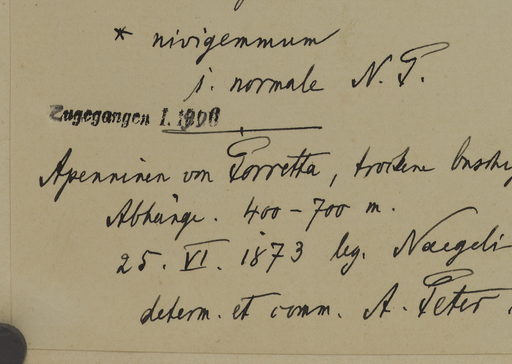 * nivigemmum
1. normale N. P.
Zugegangen I. 1906
Apenninen von Porretta, trockene buschig
Abhänge. 400-700 m.
25. VI. 1873 leg. Naegeli
determ. et comm. A. Peter